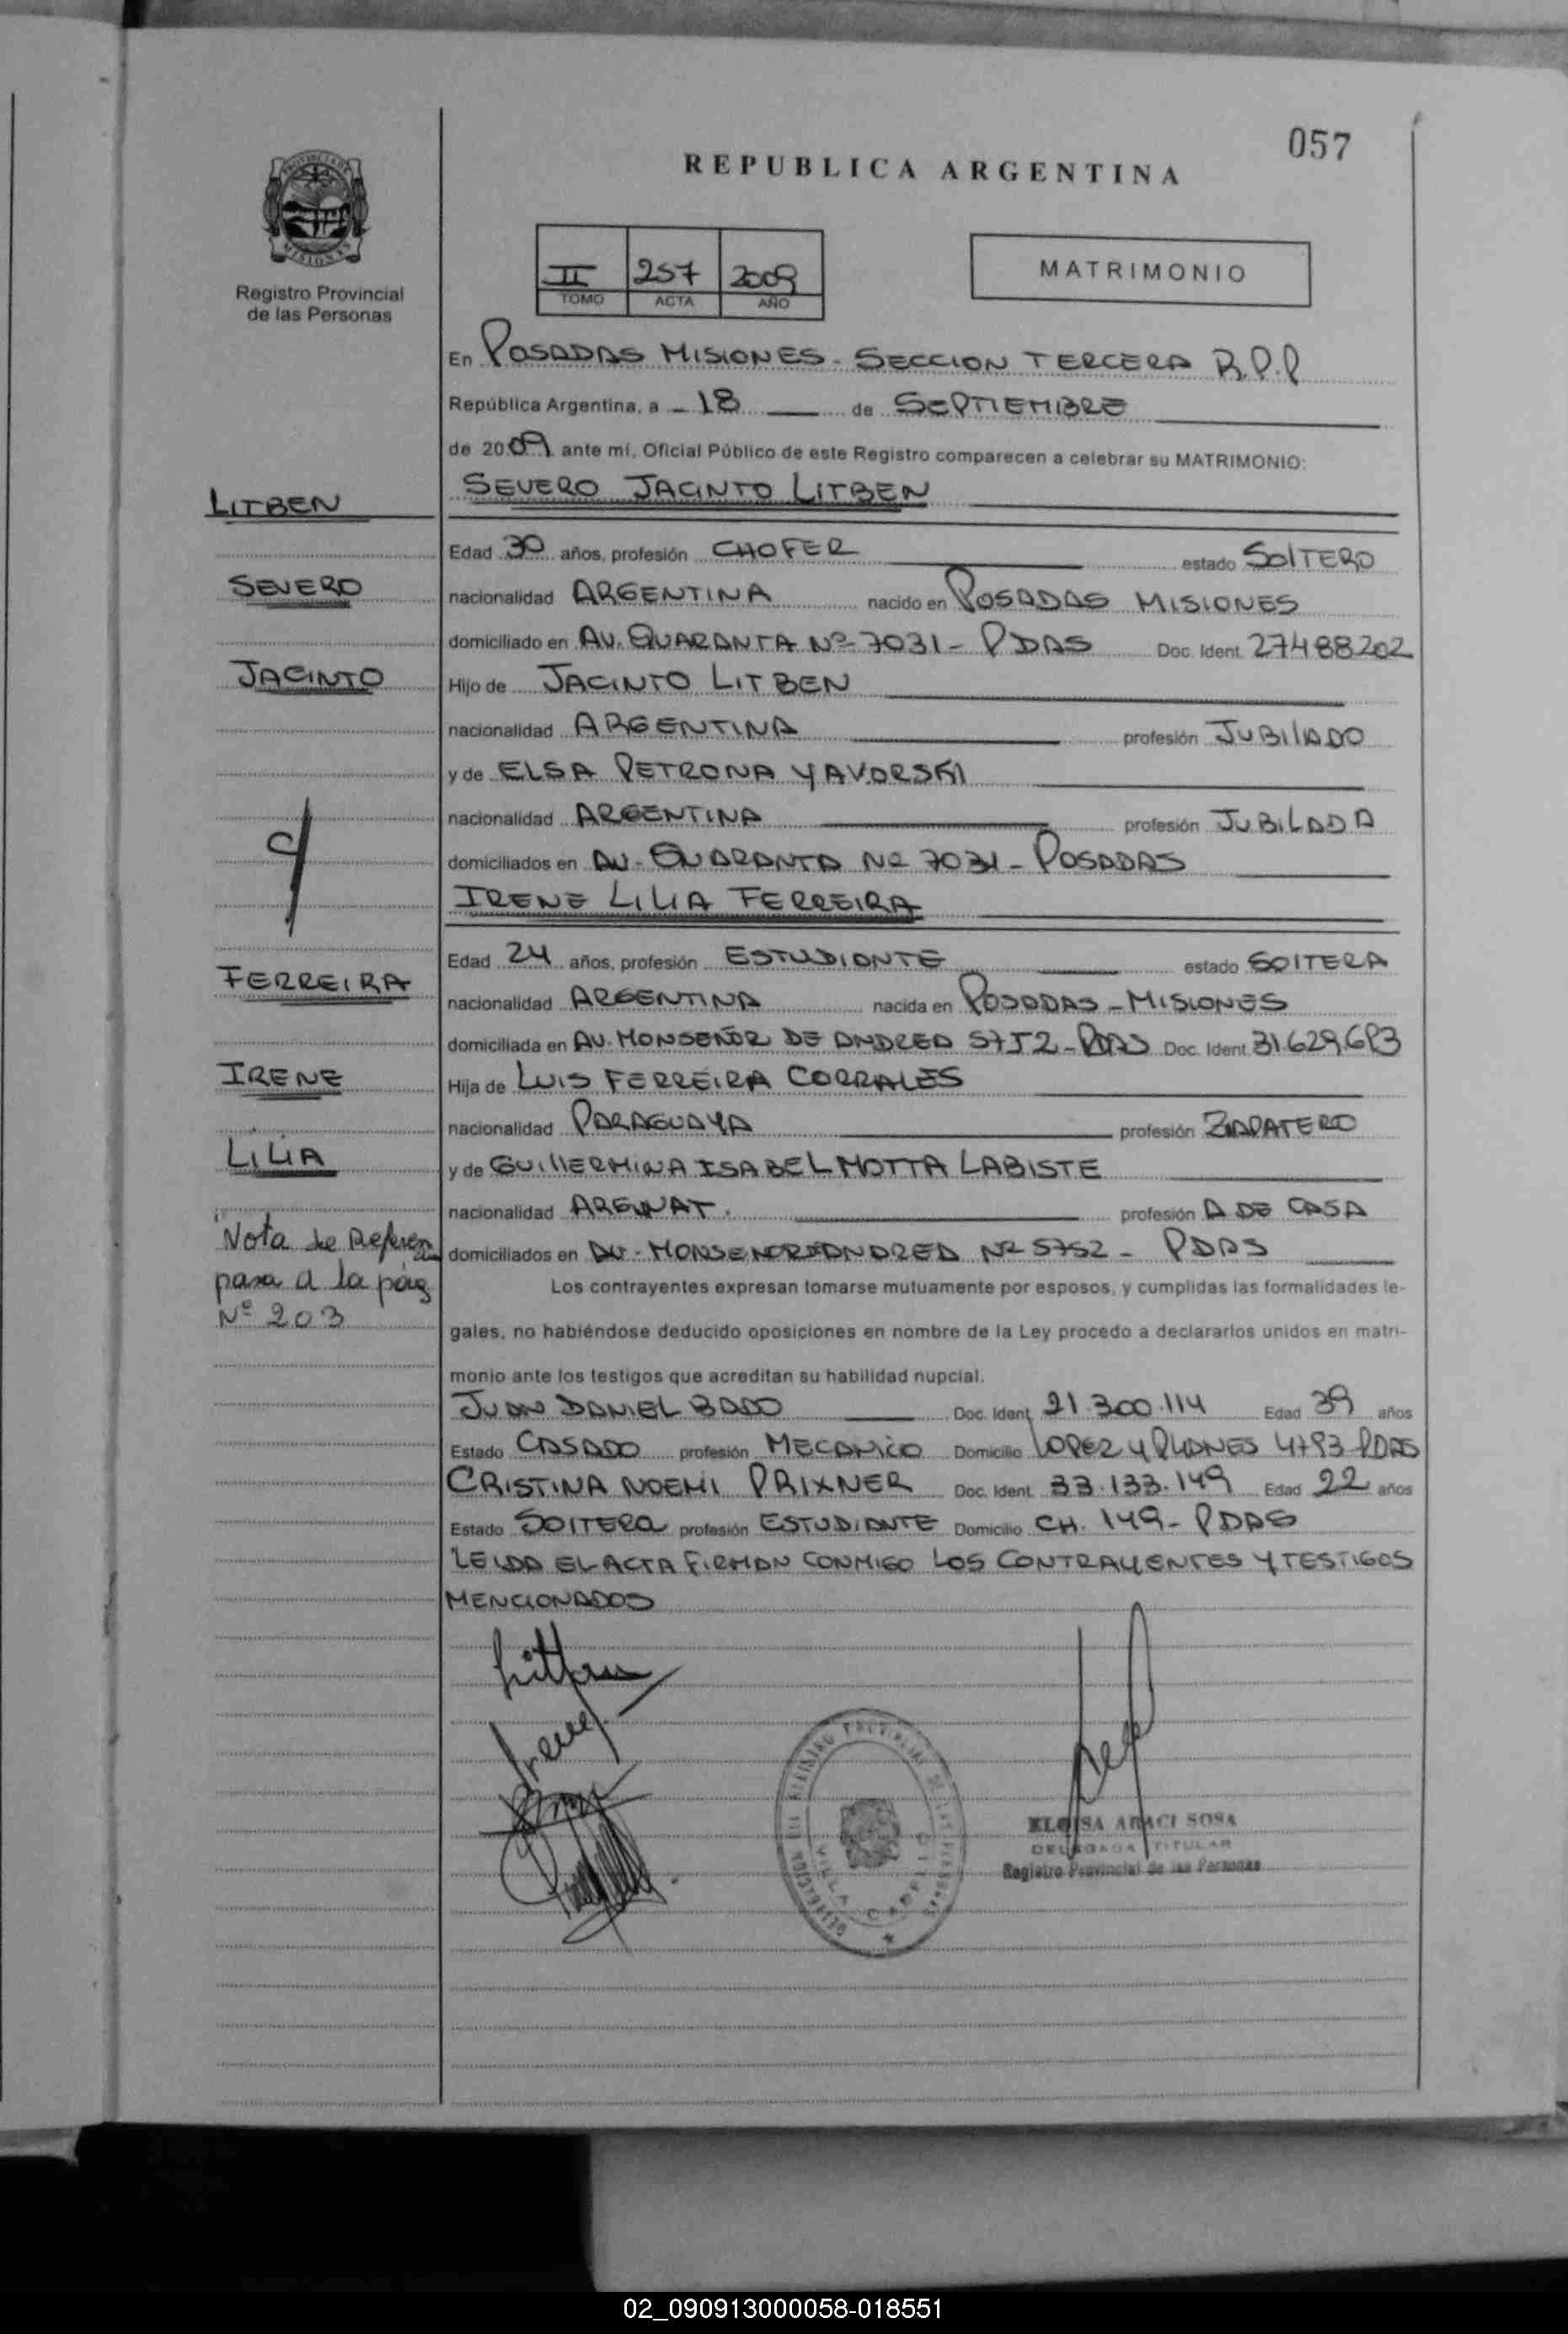 057
REPUBLICA ARGENTINA
II 257 2009
TOMO ACTA AÑO
MATRIMONIO
PROVINCIA DE
MISIONES
Registro Provincial
de las Personas
En POSADAS MISIONES - SECCION TERCERA R.P.P
República Argentina, a - 18 de SEPTIEMBRE
de 2009 ante mí, Oficial Público de este Registro comparecen a celebrar su MATRIMONIO:
SEVERO JACINTO LITBEN
LITBEN
Edad 30 años, profesión CHOFER estado SOLTERO
SEVERO
nacionalidad ARGENTINA nacido en POSADAS MISIONES
domiciliado en AV. QUARANTA Nº 7031 - PDAS Doc. Ident. 27488202
JACINTO
Hijo de JACINTO LITBEN
nacionalidad ARGENTINA profesión JUBILADO
y de ELSA PETRONA YAVORSKI
nacionalidad ARGENTINA profesión JUBILADA
domiciliados en AV - QUARANTA Nº 7031 - POSADAS
IRENE LILIA FERREIRA
Edad 24 años, profesión ESTUDIANTE estado SOLTERA
FERREIRA
nacionalidad ARGENTINA nacida en POSADAS - MISIONES
domiciliada en AV. MONSEÑOR DE ANDREA 5752 - PDAS Doc. Ident.
IRENE
Hija de LUIS FERREIRA CORRALES
nacionalidad PARAGUAYA profesión ZAPATERO
LILIA
y de GUILLERMINA ISABEL MOTTA LABISTE
nacionalidad profesión A DE CASA
Nota de
domiciliados en AV - Nº 5752 - PDAS
pasa a la pág
Nº 203
Los contrayentes expresan tomarse mutuamente por esposos, y cumplidas las formalidades le-
gales, no habiéndose deducido oposiciones en nombre de la Ley procedo a declararlos unidos en matri-
monio ante los testigos que acreditan su habilidad nupcial.
JUAN DANIEL BADO Doc. Ident. 21.300.114 Edad 39 años
Estado CASADO profesión MECANICO Domicilio LOPEZ Y PLANES 4793 PDAS
CRISTINA NOEMI PRIXNER Doc. Ident. 33.133.149 Edad 22 años
Estado SOLTERA profesión ESTUDIANTE Domicilio CH. 149 - PDAS
LEIDA EL ACTA FIRMAN CONMIGO LOS CONTRAYENTES Y TESTIGOS
MENCIONADOS
ELOISA ARACI SOSA
DELEGADA TITULAR
Registro Provincial de las Personas
02_090913000058-018551